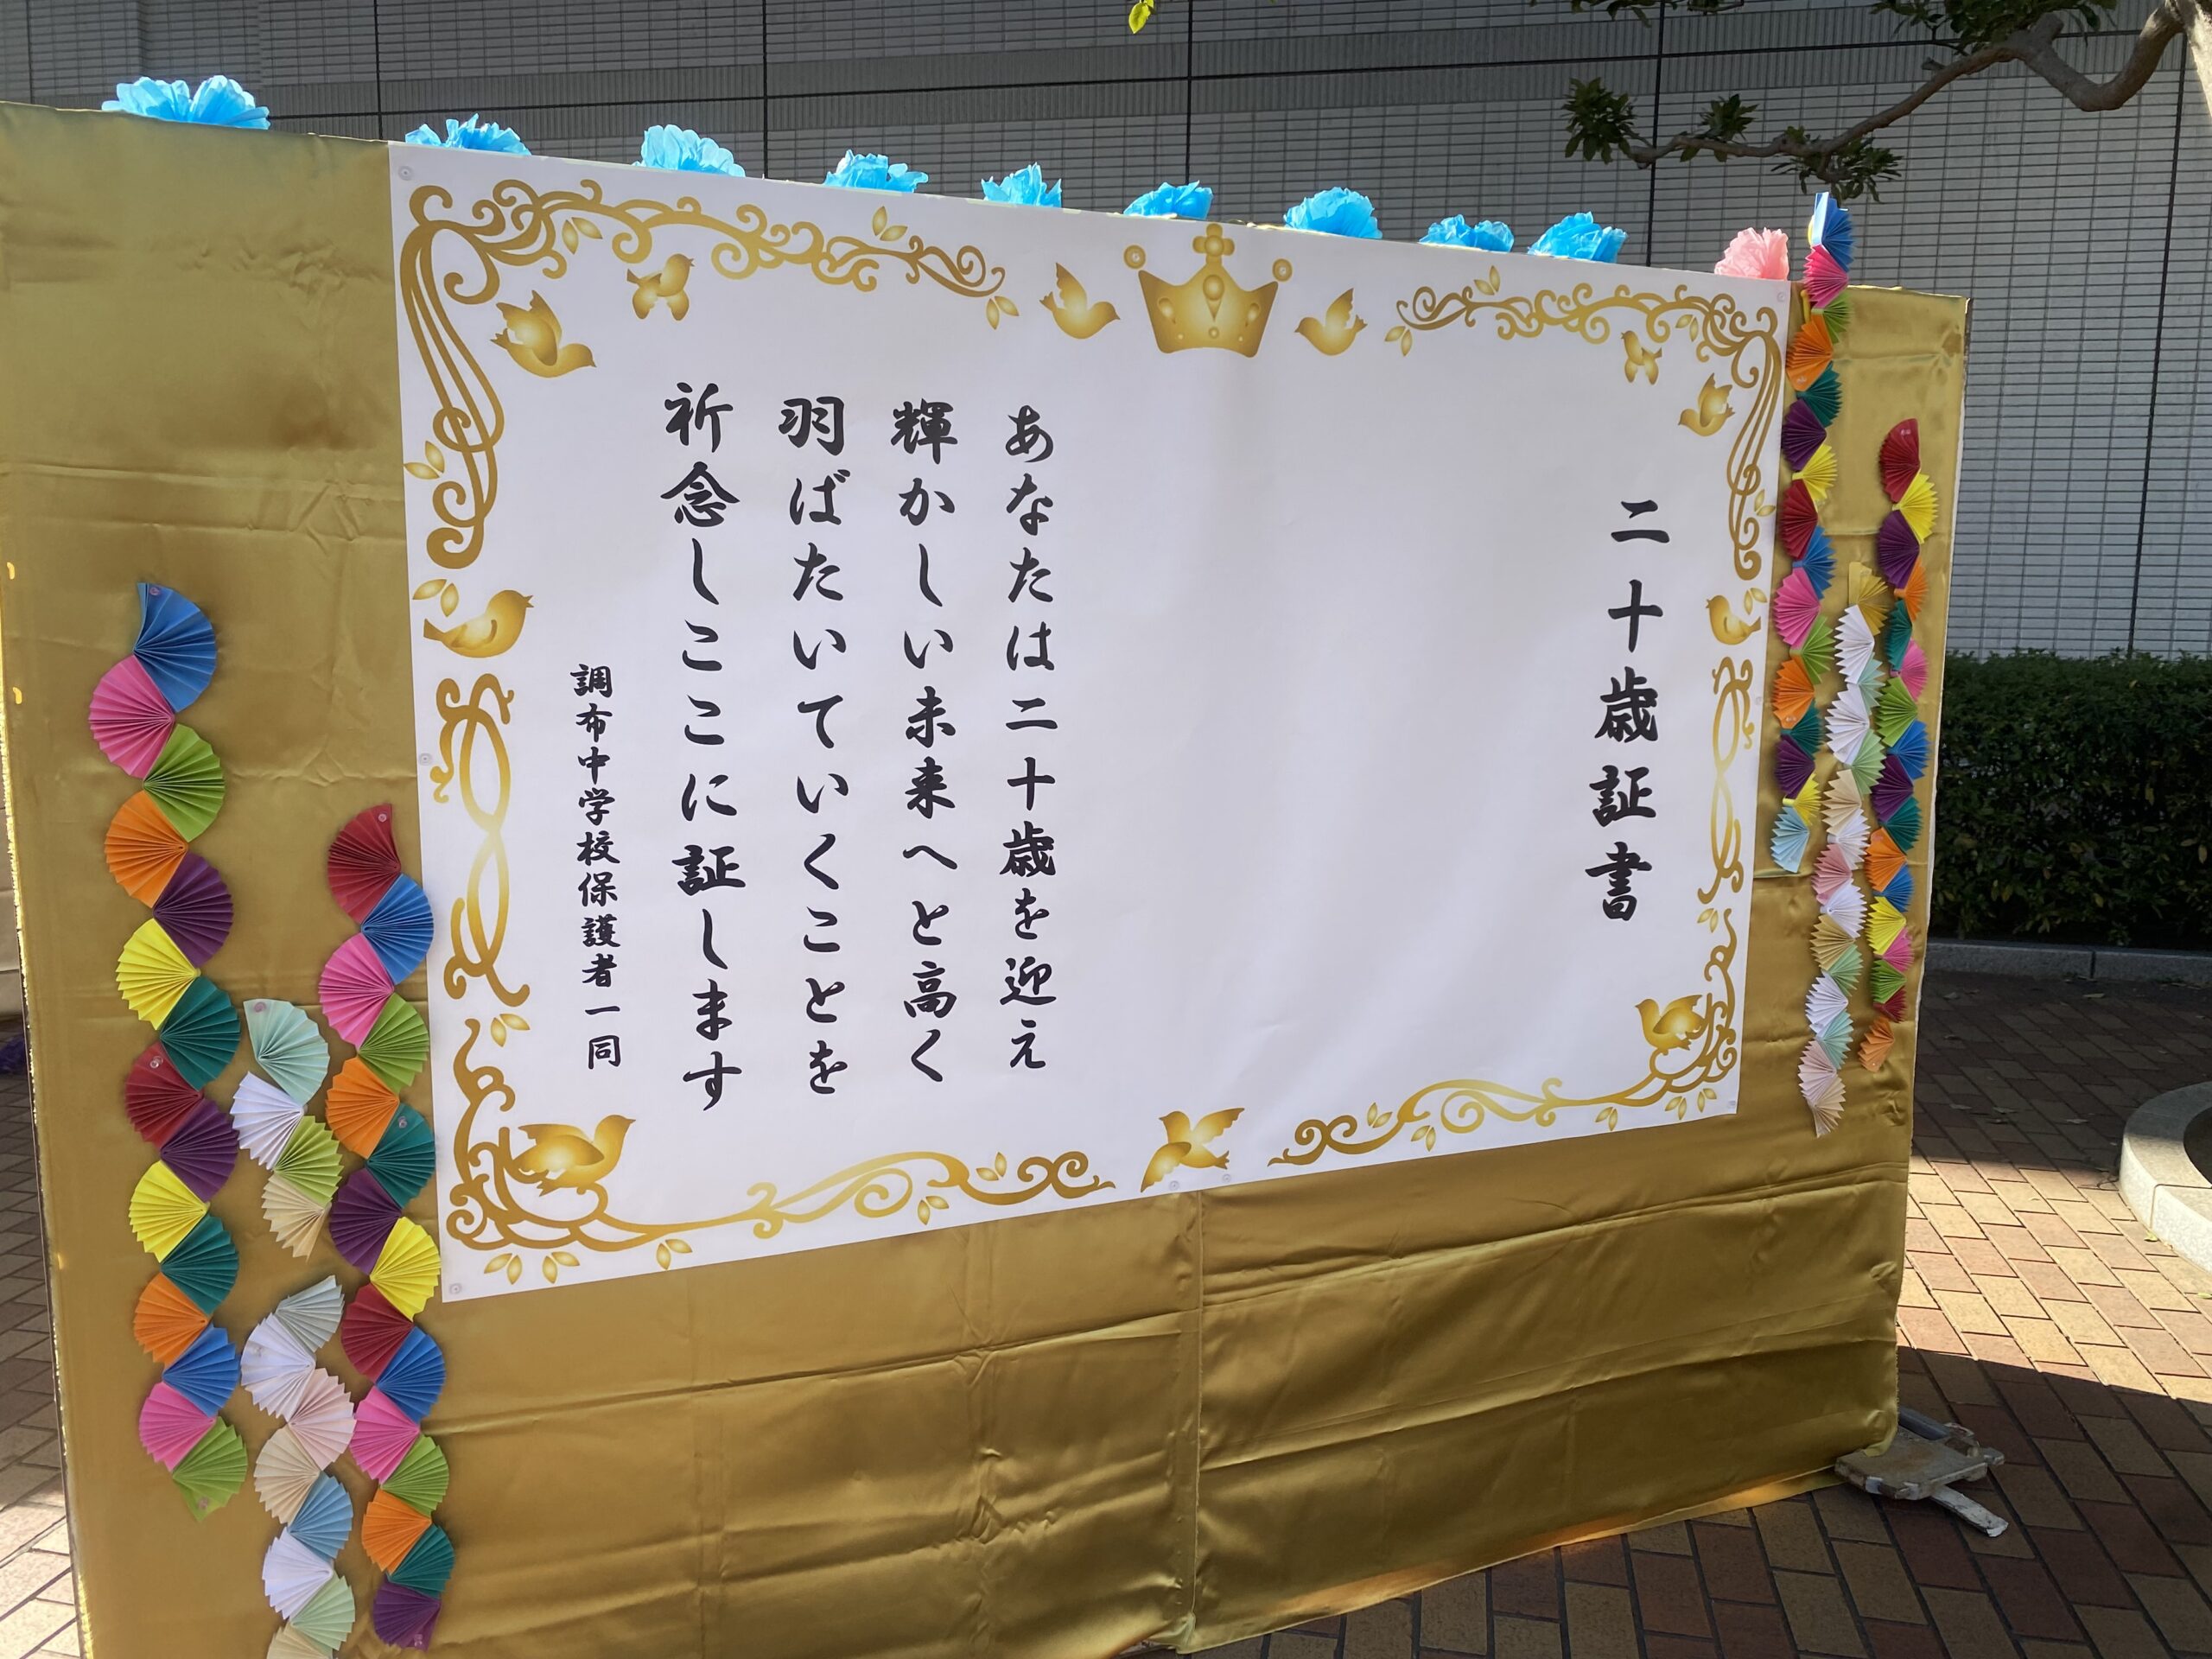 二十歳証書
あなたは二十歳を迎え
輝かしい未来へと高く
羽ばたいていくことを
祈念しここに証します
調布中学校保護者一同